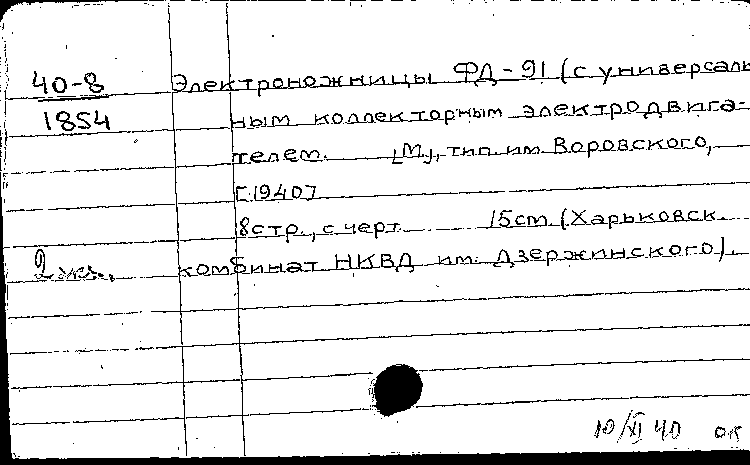 40-8 Электроножницы ФД-91 (с универсаль
1854 ным коллекторным электродвига-
телем. [М], тип. им. Воровского,
[1940]
8стр., с черт. 15см. (Харьковск.
2 экз. комбинат НКВД им. Дзержинского).
10/XI 40 ок